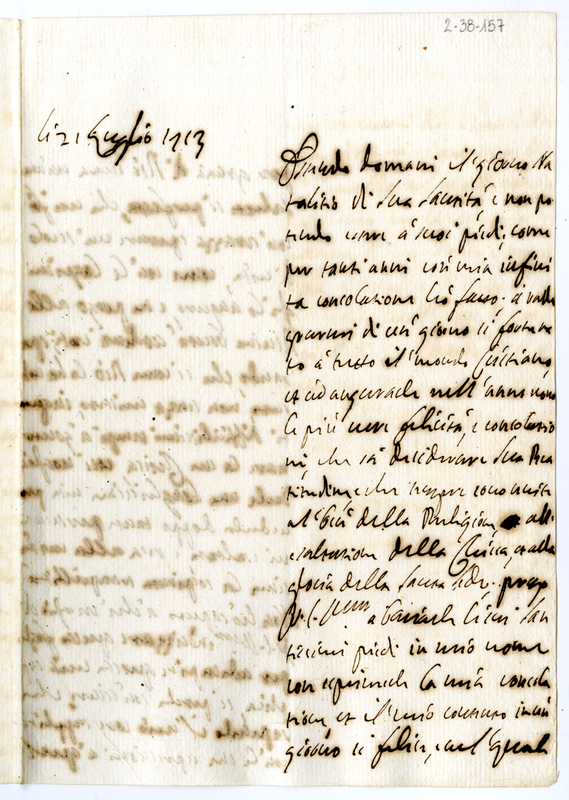 2-38-157
li 21 Luglio 1713
Essendo domani il giorno Na
talitio di Sua Santità, e non po
tendo essere a suoi piedi, come
per tanti anni con mia infini
ta consolatione hò fatto a ralle
grarmi di un' giorno sì fortuna
to a tutto il mondo Cristiano
et ad augurarle nell'anno nuovo
le più vere felicità, e consolatio
ni, che sà desiderare Sua Bea
titudine, che sempre sono unite
al ben della Religione alla
esaltatione della Chiesa, et alla
gloria della Santa Sede. prego
a baciarle li suoi San
tissimi piedi in mio nome
con esprimerle la mia consola
tione, et il mio contento in un
giorno sì felice, nel quale